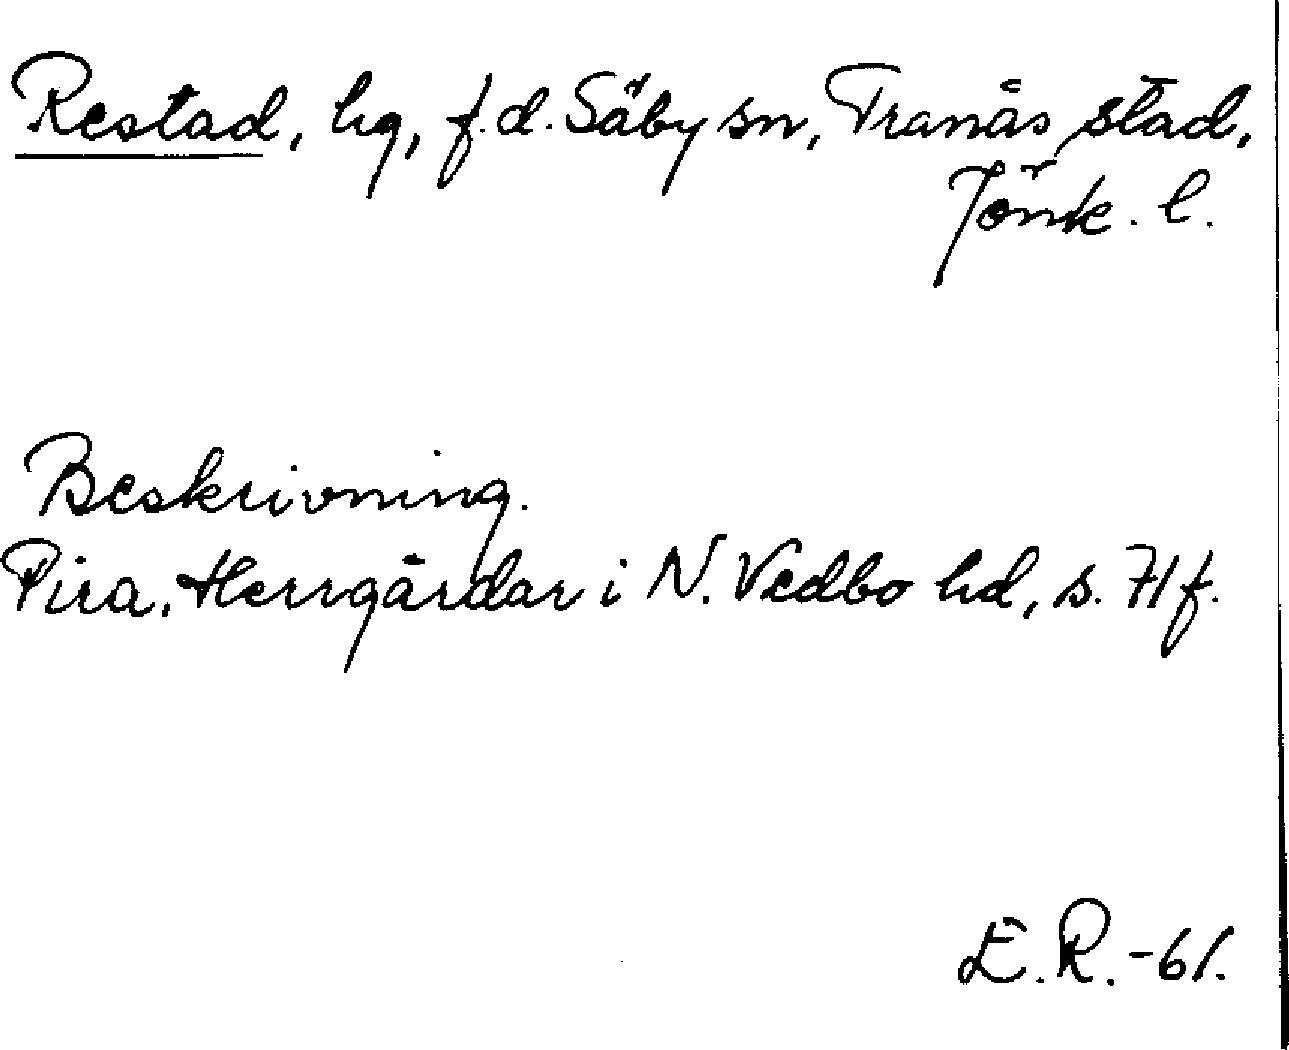 Restad, hg, f.d. Säby sn, Tranås stad,
Jönk. l.
Beskrivning.
Pira. Herrgårdar i N. Vedbo hd, s. 71 f.
E.R.-61.